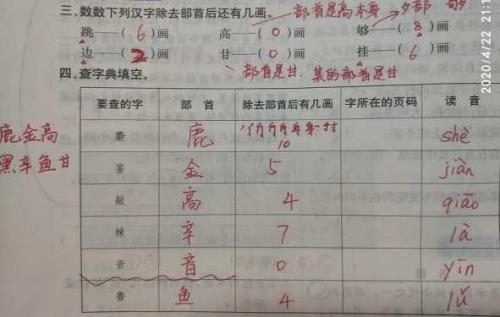 三.数数下列汉字除去部首后还有几画。 部首是高本身 夕部
跳——( 6 )画 高——( 0 )画 够——( 8 )画
边——( 2 )画 甘——( 0 )画 挂——( 6 )画
部首是甘.某的部首是甘
四.查字典填空。
要查的字 部首 除去部首后有几画 字所在的页码 读音
麝 鹿 10 shè
鹿金高 鉴 金 5 jiàn
黑辛鱼甘 敲 高 4 qiāo
辣 辛 7 là
音 音 0 yīn
鲁 鱼 4 lǔ
2020/4/22 21:1